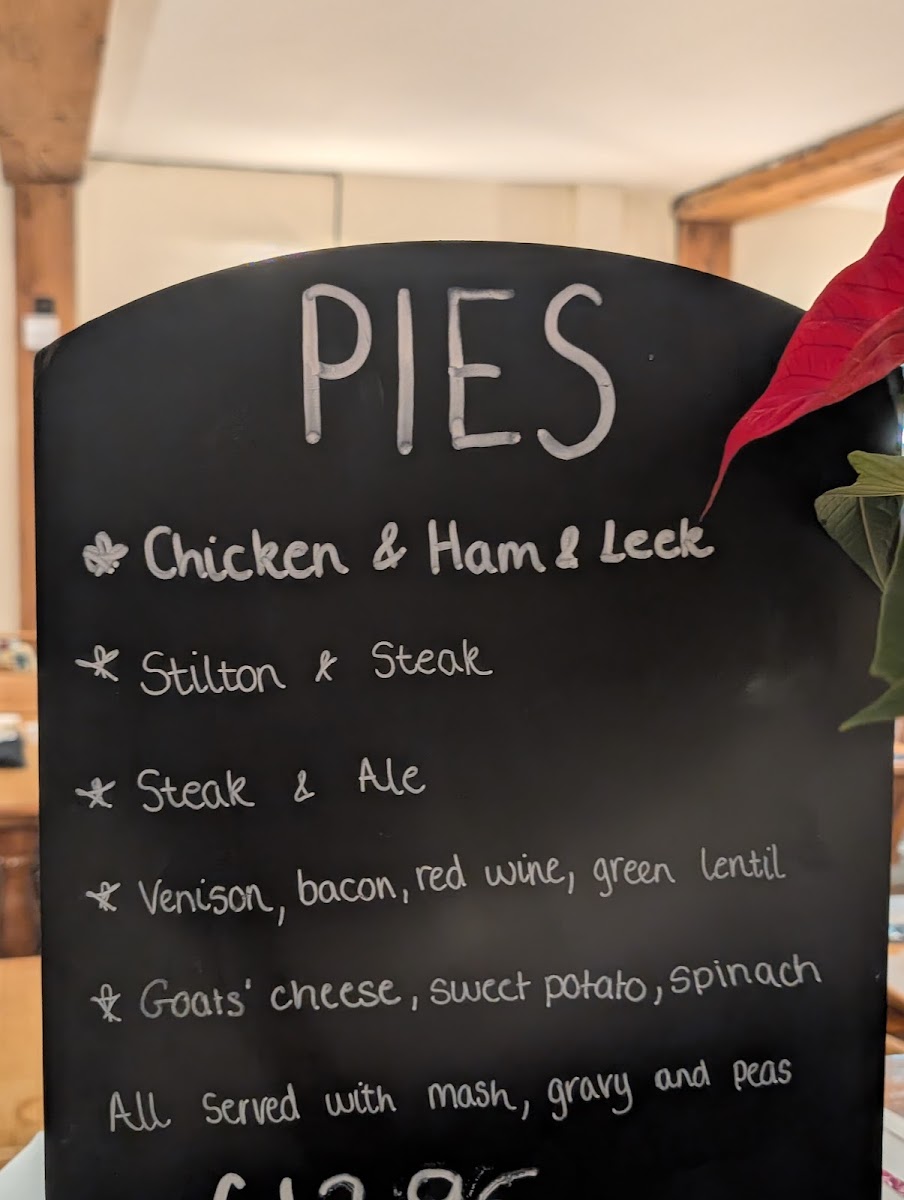 PIES
* Chicken & Ham & Leek
* Stilton & Steak
* Steak & Ale
* Venison, bacon, red wine, green lentil
* Goats' cheese, sweet potato, spinach
All served with mash, gravy and peas